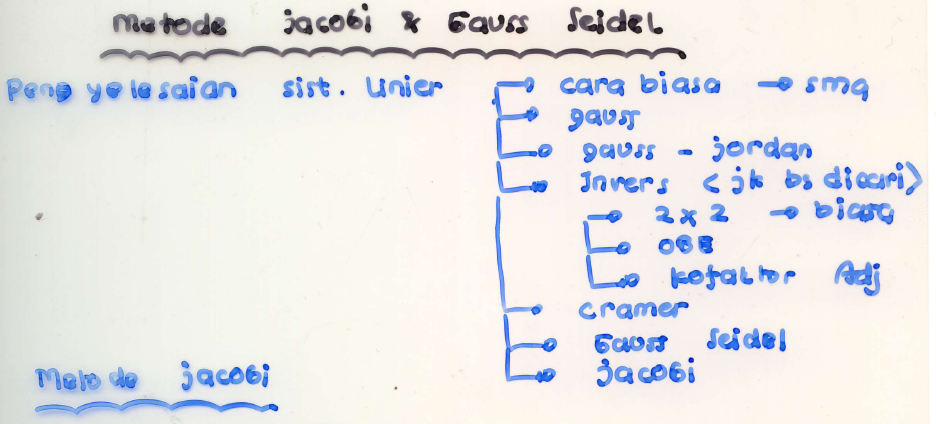 Metode jacobi & Gauss Seidel
Pengyelesaian sist. Linier → cara biasa → sma
gauss
gauss - jordan
Invers <jk bs dicari>
2x2 → biasa
OBE
kofaktor Adj
cramer
Gauss Seidel
jacobi
Metode jacobi